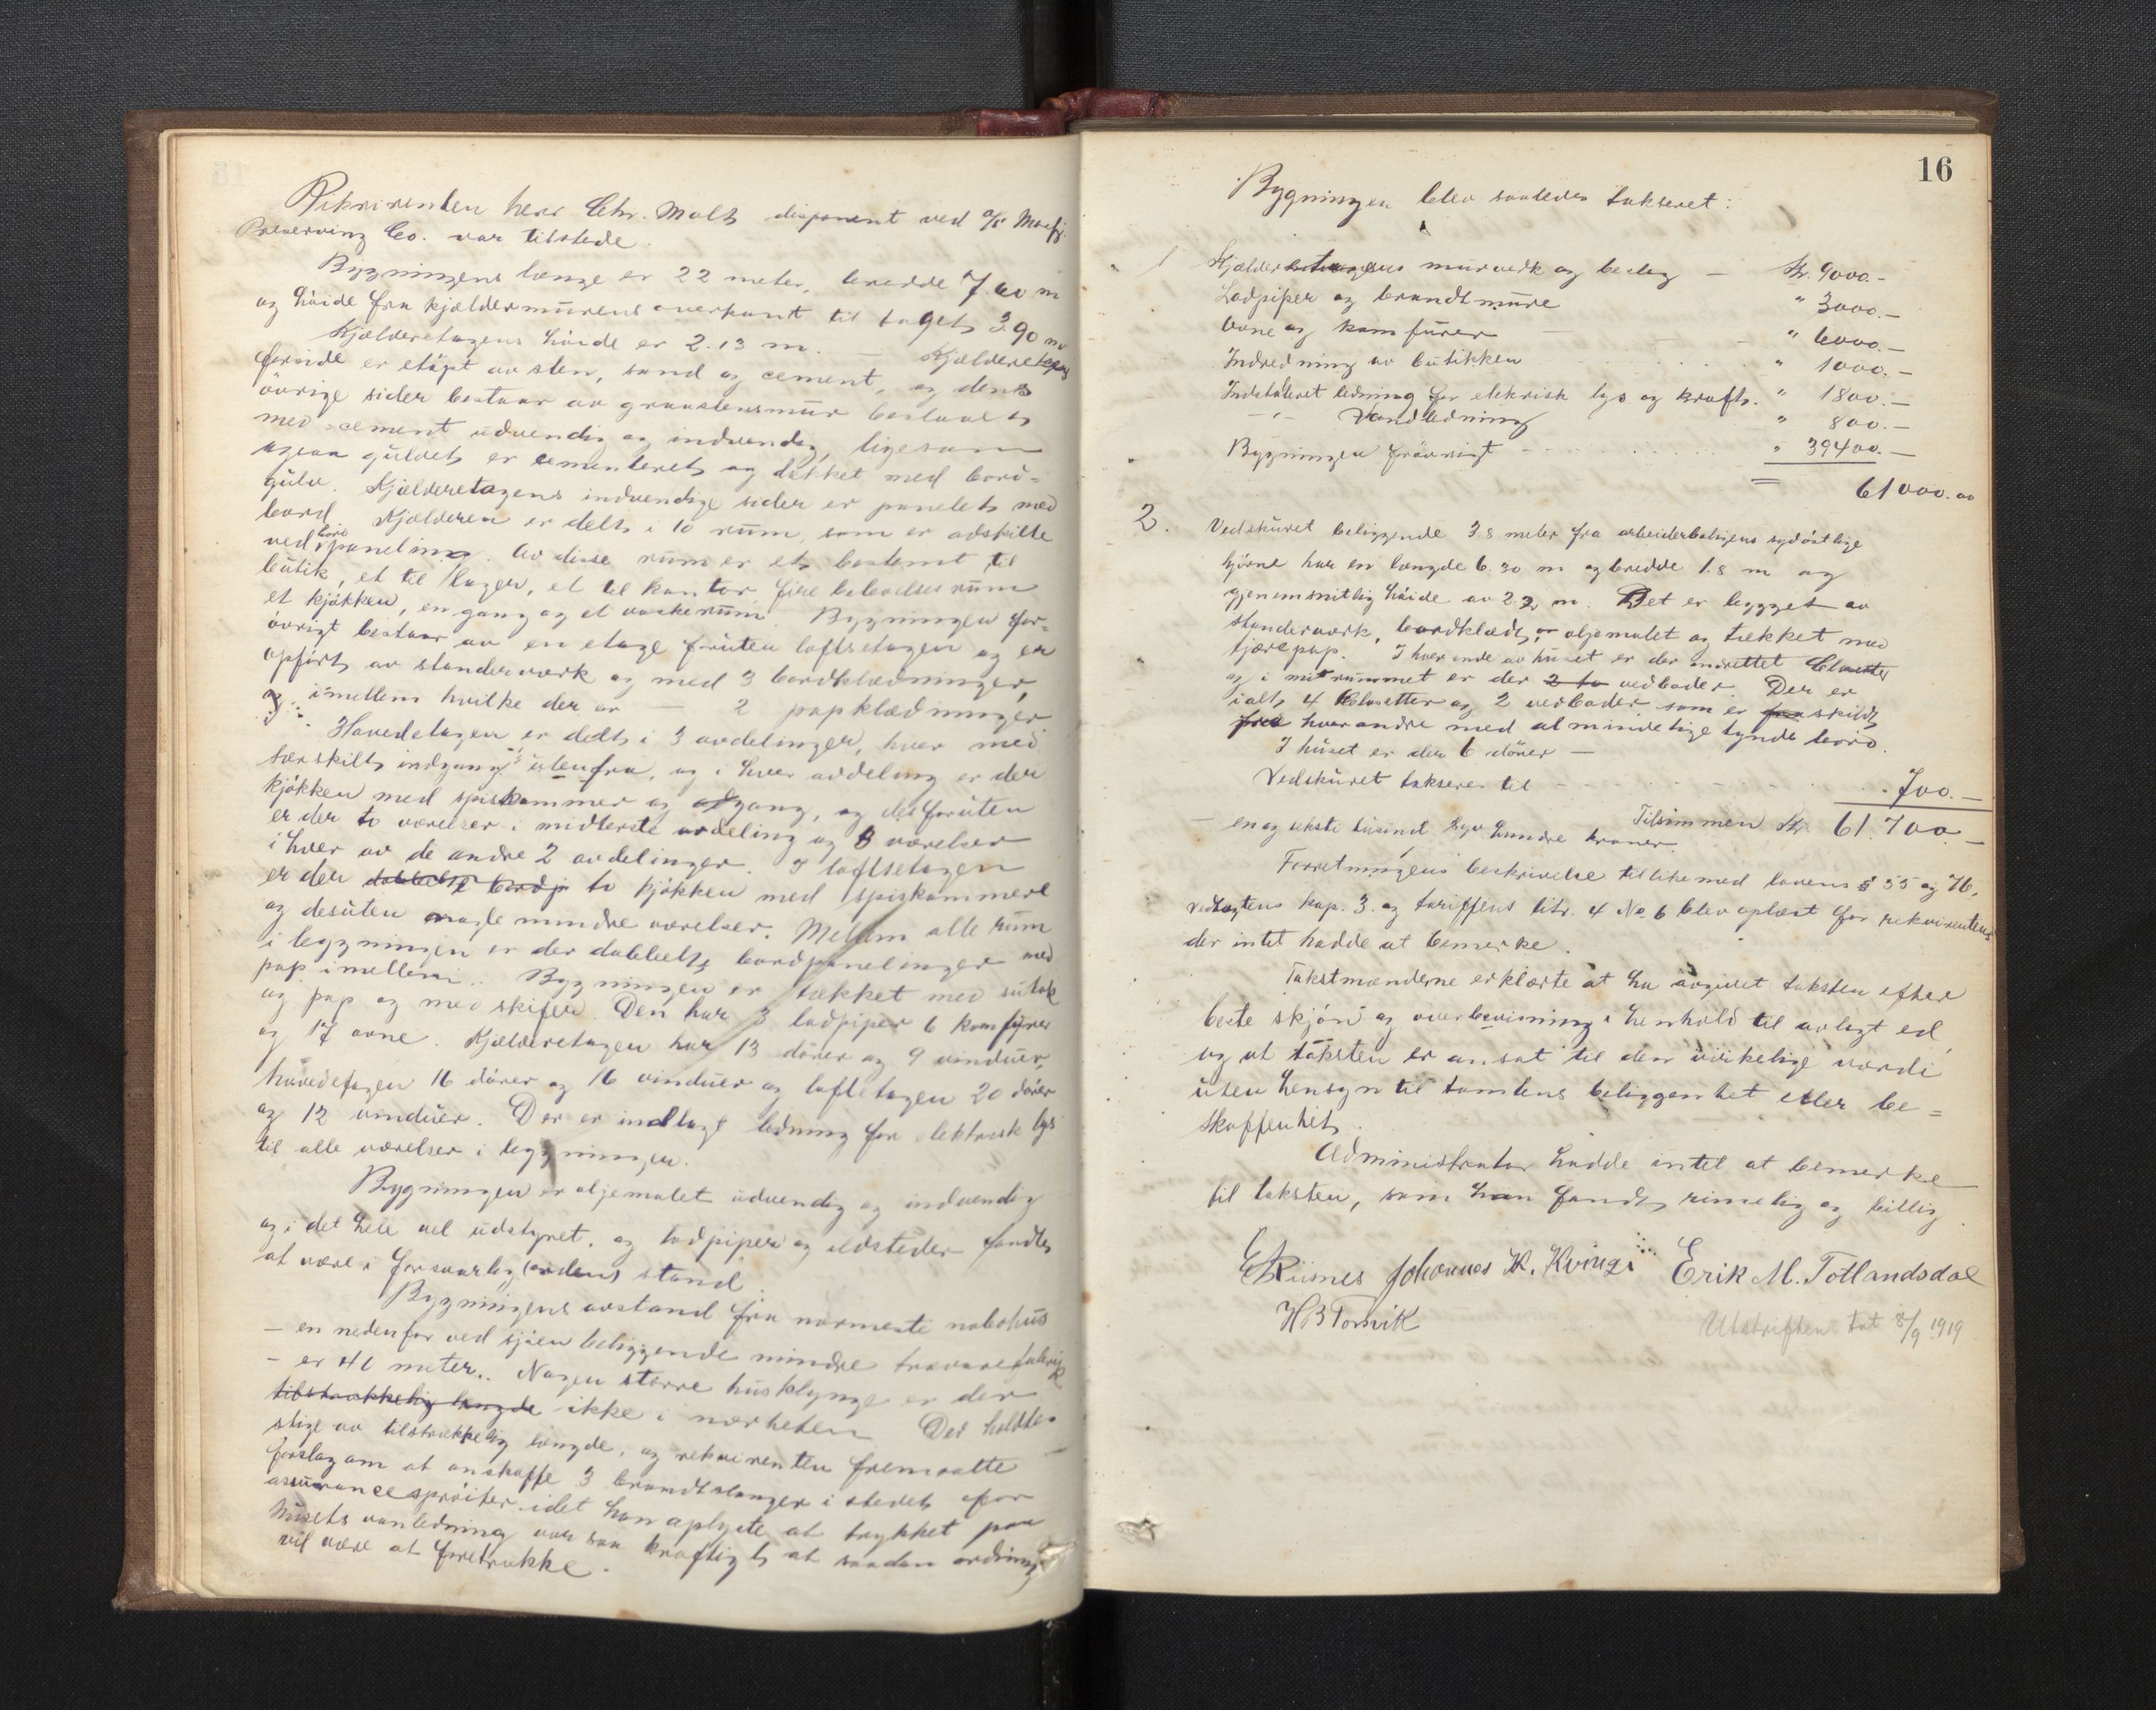 Rekvirenten herr Chr. Malt disponent ved a/s
Preserving Co. var tilstede.
Bygningens længe er 22 meter, bredde 7.60 m
og høide fra kjældermurens overkant til taget 3.90 m
Kjælderetagens høide er 2.13 m. — Kjælderetagens
forside er støpt av sten, sand og cement, og dens
øvrige sider bestaar av graastensmur
med cement udvendig og indvendig, ligesom
ogsaa gulvet er cementeret og dækket med bord=
gulv. Kjælderetagens indvendige sider er panelet med
bord. Kjælderen er delt i 10 rum, som er adskilte
ved bord paneling. Av disse rum er et bestemt til
butik, et til lager, et til kontor, fire beboelsesrum
et kjøkken, en gang og et vaskerum. Bygningen for=
øvrigt bestaar av en etage foruten loftsetagen og er
opført av standerværk og med 3 bordklædninger,
imellem hvilke der er — 2 papklædninger
Hovedetagen er delt i 3 avdelinger, hver med
særskilt indgang utenfra, og i hver avdeling er der
kjøkken med spiskammer og gang, og desforuten
er der to værelser i midterste avdeling og 3 værelser
i hver av de andre 2 avdelinger. I loftsetagen
er der dobbelte bordp to kjøkken med spiskammere
og desuten nogle mindre værelser. Mellem alle rum
i bygningen er der dobbelt bordpanelinger med
pap imellem. Bygningen er tækket med sutak
og pap og med skifer. Den har 3 ladpiper 6 komfyrer
og 17 ovne. Kjælderetagen har 13 dører og 9 vinduer,
hovedetagen 16 dører og 16 vinduer og loftetagen 20 dører
og 12 vinduer. Der er indlagt ledning for elektrisk lys
til alle værelser i bygningen.
Bygningen er oljemalet udvendig og indvendig
og i det hele vel udstyret, og ladpiper og ildsteder fandtes
at være i forsvarlig stand.
Bygningens avstand fra nærmeste nabohus
— en nedenfor ved sjøen beliggende mindre trævarefabrik
— er 40 meter. Nogen større husklynge er der
tilstrækkelig længde ikke i nærheten. Der holdtes
stige av tilstrækkelig længde, og rekvirenten fremsatte
forslag om at anskaffe 3 brandtslanger i stedet for
assurancesprøiter idet han oplyste at trykket paa
husets vanledning var saa kraftigt at saadan ordning
vil være at foretrække.
16
Bygningen blev saaledes takseret:
1 Kjælderetagens murverk og beslag — Kr. 9000.—
Ladpiper og brandtmure " 3000.—
Ovne og komfurer — " 6000.—
Indredning av butikken " 1000.—
Indstaleret ledning for elekrisk lys og kraft. " 1800.—
—"— Vandledning " 800.—
Bygningen forøvrigt " 39400.—
61000.00
2. Vedskuret beliggende 3.8 meter fra arbeiderboligens sydøstlige
hjørne har en længde 6.30 m og bredde 1.8 m og
gjenemsnitlig høide av 2.2 m. Det er bygget av
standerværk, bordklædt, oljemalet og tækket med
tjærepap. I hver ende av huset er der indrettet Closetter
og i mitrummet er der 2 to vedboder. Der er
ialt 4 Closetter og 2 vedboder som er fra skildt
fra hverandre med almindelige tynde bord.
I huset er der 6 dører —
Vedskuret takseres til 700.—
Tilsammen Kr. 61.700.—
— en og seksti tusind syv hundre kroner.
Forretningens beskrivelse tillikemed lovens § 55 og 76,
vedtægtens kap. 3. og tariffens litr. 4 No 6 blev oplæst for rekvirenten
der intet hadde at bemerke.
Takstmænderne erklærte at ha avgivet taksten efter
beste skjøn og overbevisning i henhold til avlagt ed,
og at taksten er ansat til den virkelige værdi
uten hensyn til tomtens beliggenhet eller be=
skaffenhet.
Administrator hadde intet at bemerke
til taksten, som han fandt rimelig og billig.
Johannes K. Kvinge Erik M. Totlandsdal
H B Tornvik
Utskriften tat 8/9 1919